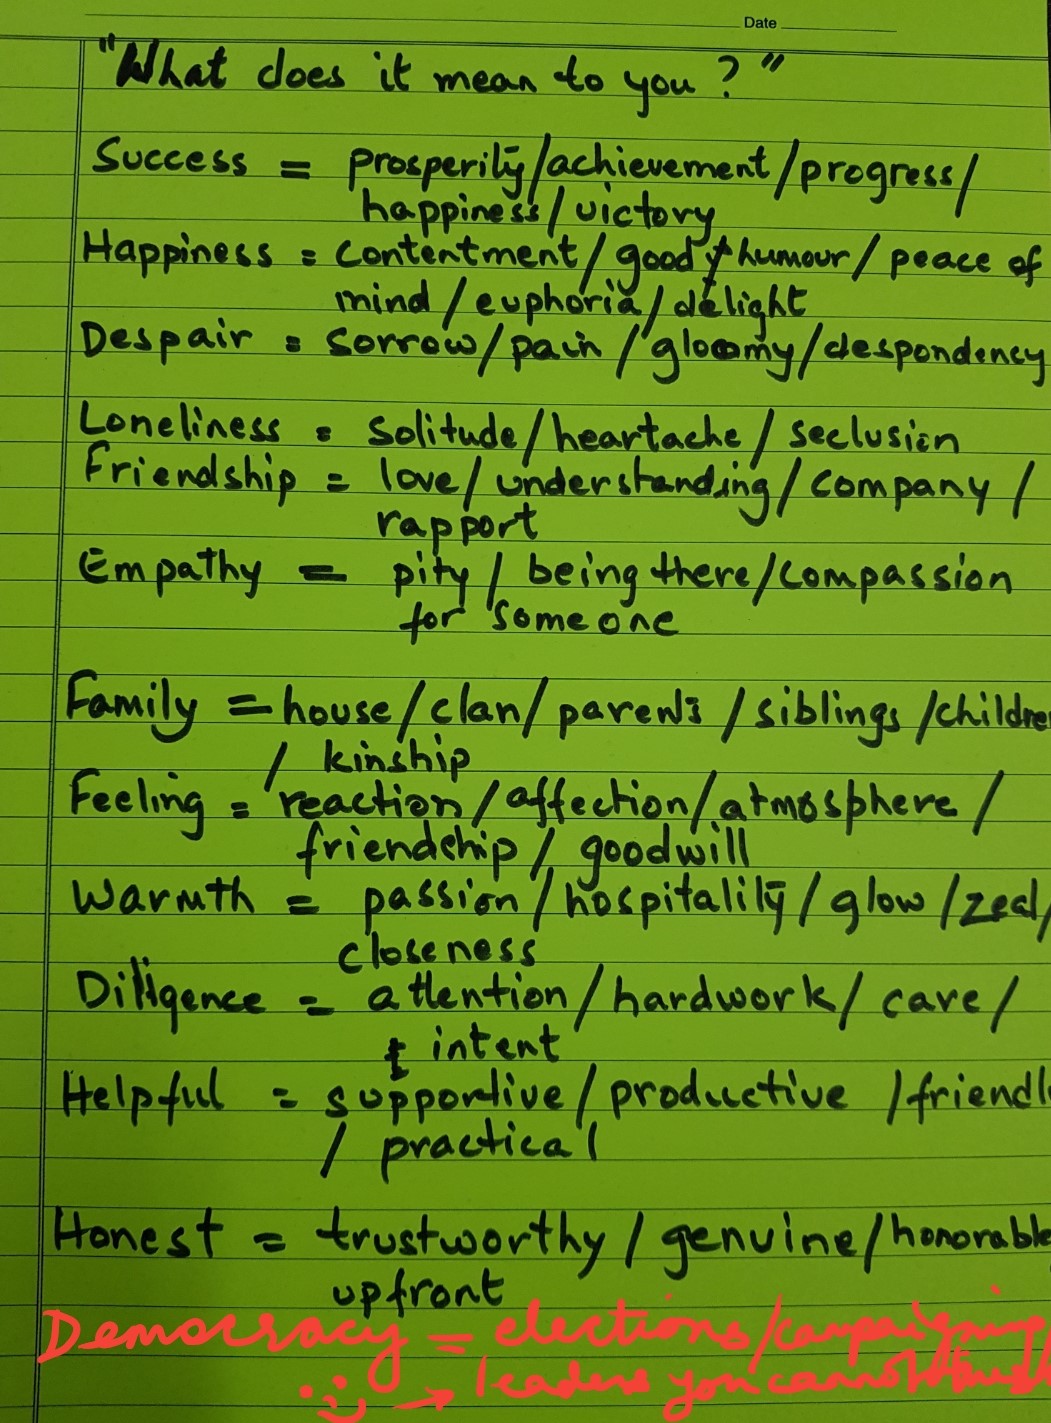 Date
"What does it mean to you?"
Success = prosperity/achievement/progress/
happiness/victory
Happiness = contentment/good humour/peace of
mind/euphoria/delight
Despair = sorrow/pain/gloomy/despondency
Loneliness = solitude/heartache/seclusion
Friendship = love/understanding/company/
rapport
Empathy = pity/being there/compassion
for someone
Family = house/clan/parents/siblings/childre
/ kinship
Feeling = reaction/affection/atmosphere/
friendship/goodwill
Warmth = passion/hospitality/glow/zeal/
closeness
Diligence = attention/hardwork/care/
intent
Helpful = supportive/productive/friendl
/ practical
Honest = trustworthy/genuine/honorable
upfront
Democracy = elections/campaigning
→ leaders you cannot trust